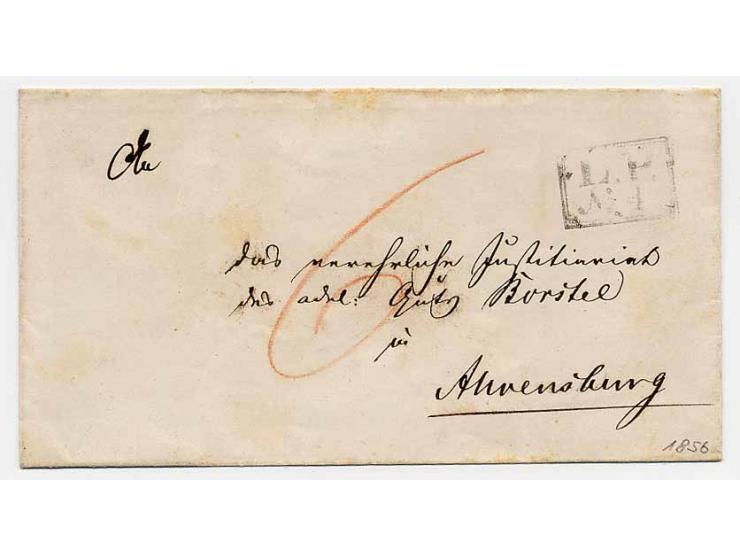 An
L.P.
No 1
das verehrliche Justitiariat
des adel: Guts Borstel
in
Ahrensburg
6
1856